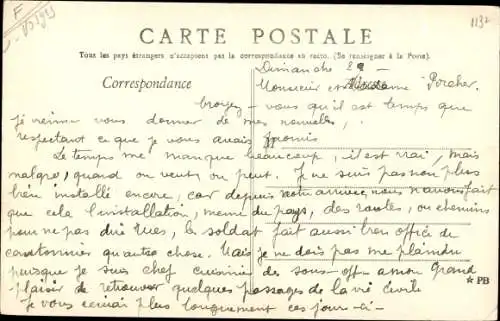 F
1132
CARTE POSTALE
Tous les pays étrangers n'acceptent pas la correspondance au recto. (Se renseigner à la Poste).
Correspondance
Dimanche
Monsieur et Madame Porcher.
Croyez-vous qu'il est temps que
je vienne vous donner de mes nouvelles,
respectant ce que je vous avais promis
Le temps me manque beaucoup, il est vrai, mais
malgré, quand on veut, on peut. Je ne suis pas non plus
bien installé encore, car depuis notre arrivée, nous n'avons fait
que cela l'installation, même du pays, des routes, ou chemins
pour ne pas dire rues, le soldat fait aussi bien office de
cantonnier qu'autre chose. Mais je ne dois pas me plaindre
puisque je suis chef cuisinier des sous-off a mon grand
plaisir de retrouver quelques passages de la vie civile
Je vous écrirai plus longuement ces jours-ci-
★ PB